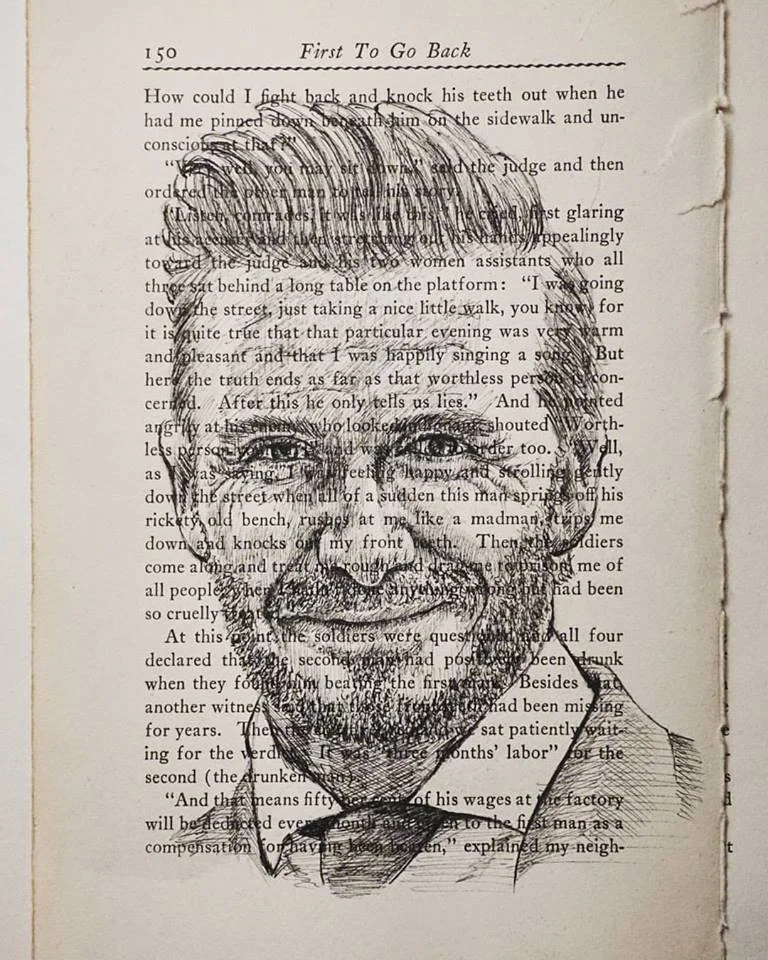 150 First To Go Back
How could I fight back and knock his teeth out when he
had me pinned down beneath him on the sidewalk and un-
conscious at that?”
“Very well, you may sit down,” said the judge and then
ordered the other man to tell his story.
“Listen, comrades, it was like this,” he cried, first glaring
at his accuser and then stretching out his hands appealingly
toward the judge and his two women assistants who all
three sat behind a long table on the platform: “I was going
down the street, just taking a nice little walk, you know, for
it is quite true that that particular evening was very warm
and pleasant and that I was happily singing a song. But
here the truth ends as far as that worthless person is con-
cerned. After this he only tells us lies.” And he pointed
angrily at his enemy, who looked indignant, shouted “Worth-
less person yourself” and was called to order too. “Well,
as I was saying, I was feeling happy and strolling gently
down the street when all of a sudden this man springs off his
rickety old bench, rushes at me like a madman, trips me
down and knocks out my front teeth. Then the soldiers
come along and treat me rough and drag me to prison, me of
all people, when I hadn't done anything wrong but had been
so cruelly treated.”
At this point the soldiers were questioned and all four
declared that the second man had positively been drunk
when they found him beating the first man. Besides that,
another witness said that those front teeth had been missing
for years. Then the sat patiently wait-
ing for the verdict. It was “three months' labor” for the
second (the drunken man).
“And that means fifty per cent. of his wages at the factory
will be deducted every month and given to the first man as a
compensation for having been beaten,” explained my neigh-